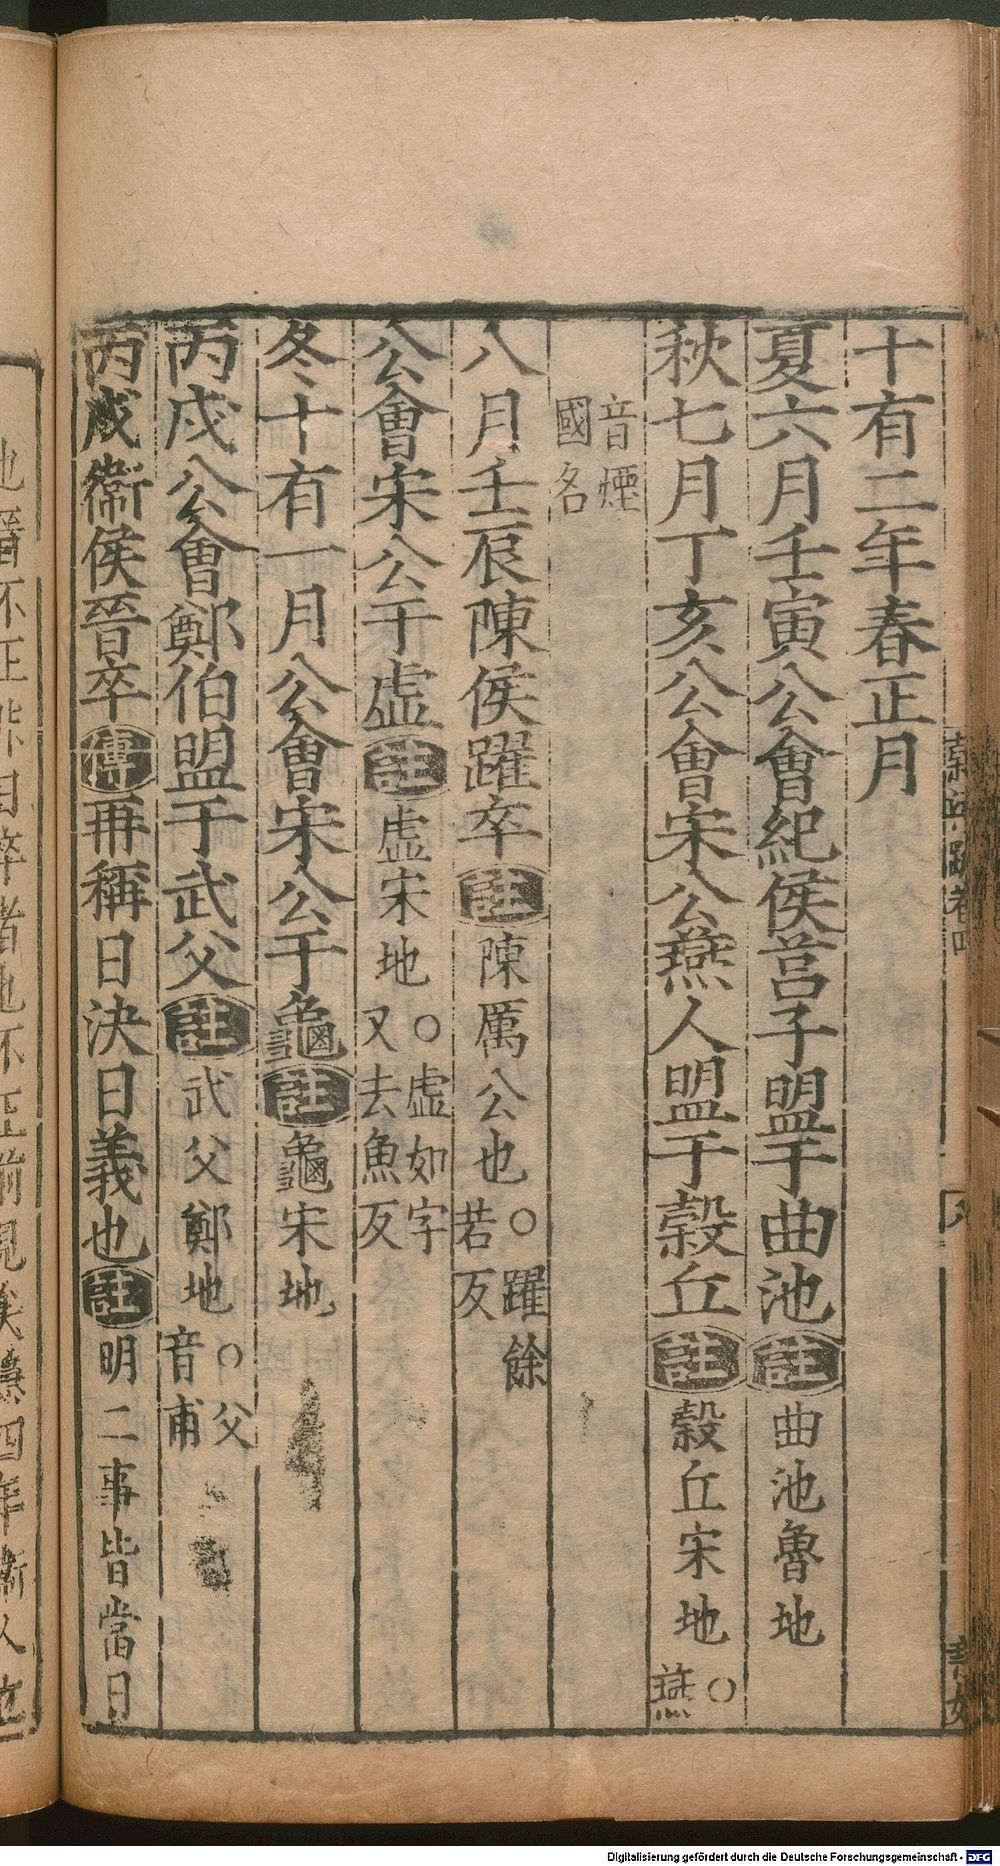 十有二年春正月
夏六月壬寅公會紀侯莒子盟于曲池註曲池魯地
秋七月丁亥公會宋公燕人盟于穀丘註穀丘宋地○燕
音煙國名
八月壬辰陳侯躍卒註陳厲公也○躍餘若反
公會宋公于虛註虛宋地○虛如字又去魚反
冬十有一月公會宋公于龜註龜宋地
丙戌公會鄭伯盟于武父註武父鄭地○父音甫
丙戌衞侯晉卒傳再稱日決日義也註明二事皆當日
Digitalisierung gefördert durch die Deutsche Forschungsgemeinschaft - DFG